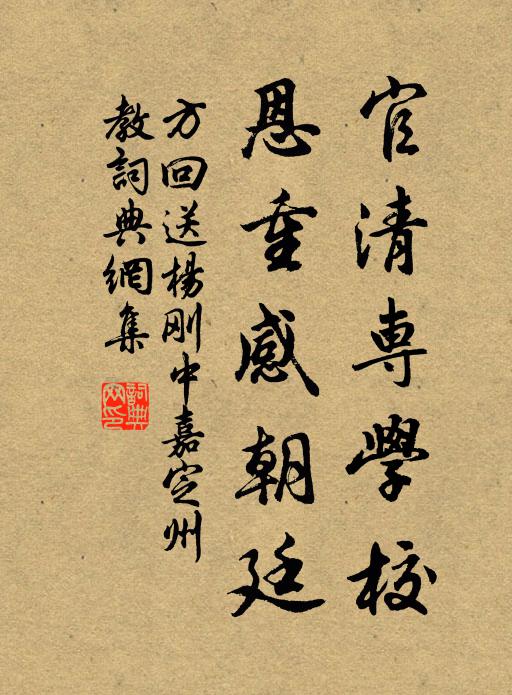 官清専學校
恩重感朝廷
方回送楊刚中嘉定州
教詞典網集
詞典網印